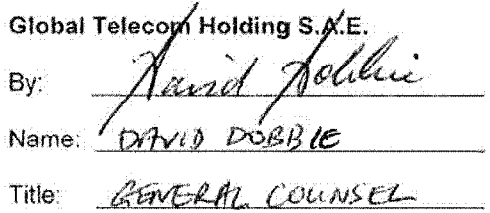 Global Telecom Holding S.A.E.
By: David Dobbie
Name: DAVID DOBBIE
Title: GENERAL COUNSEL